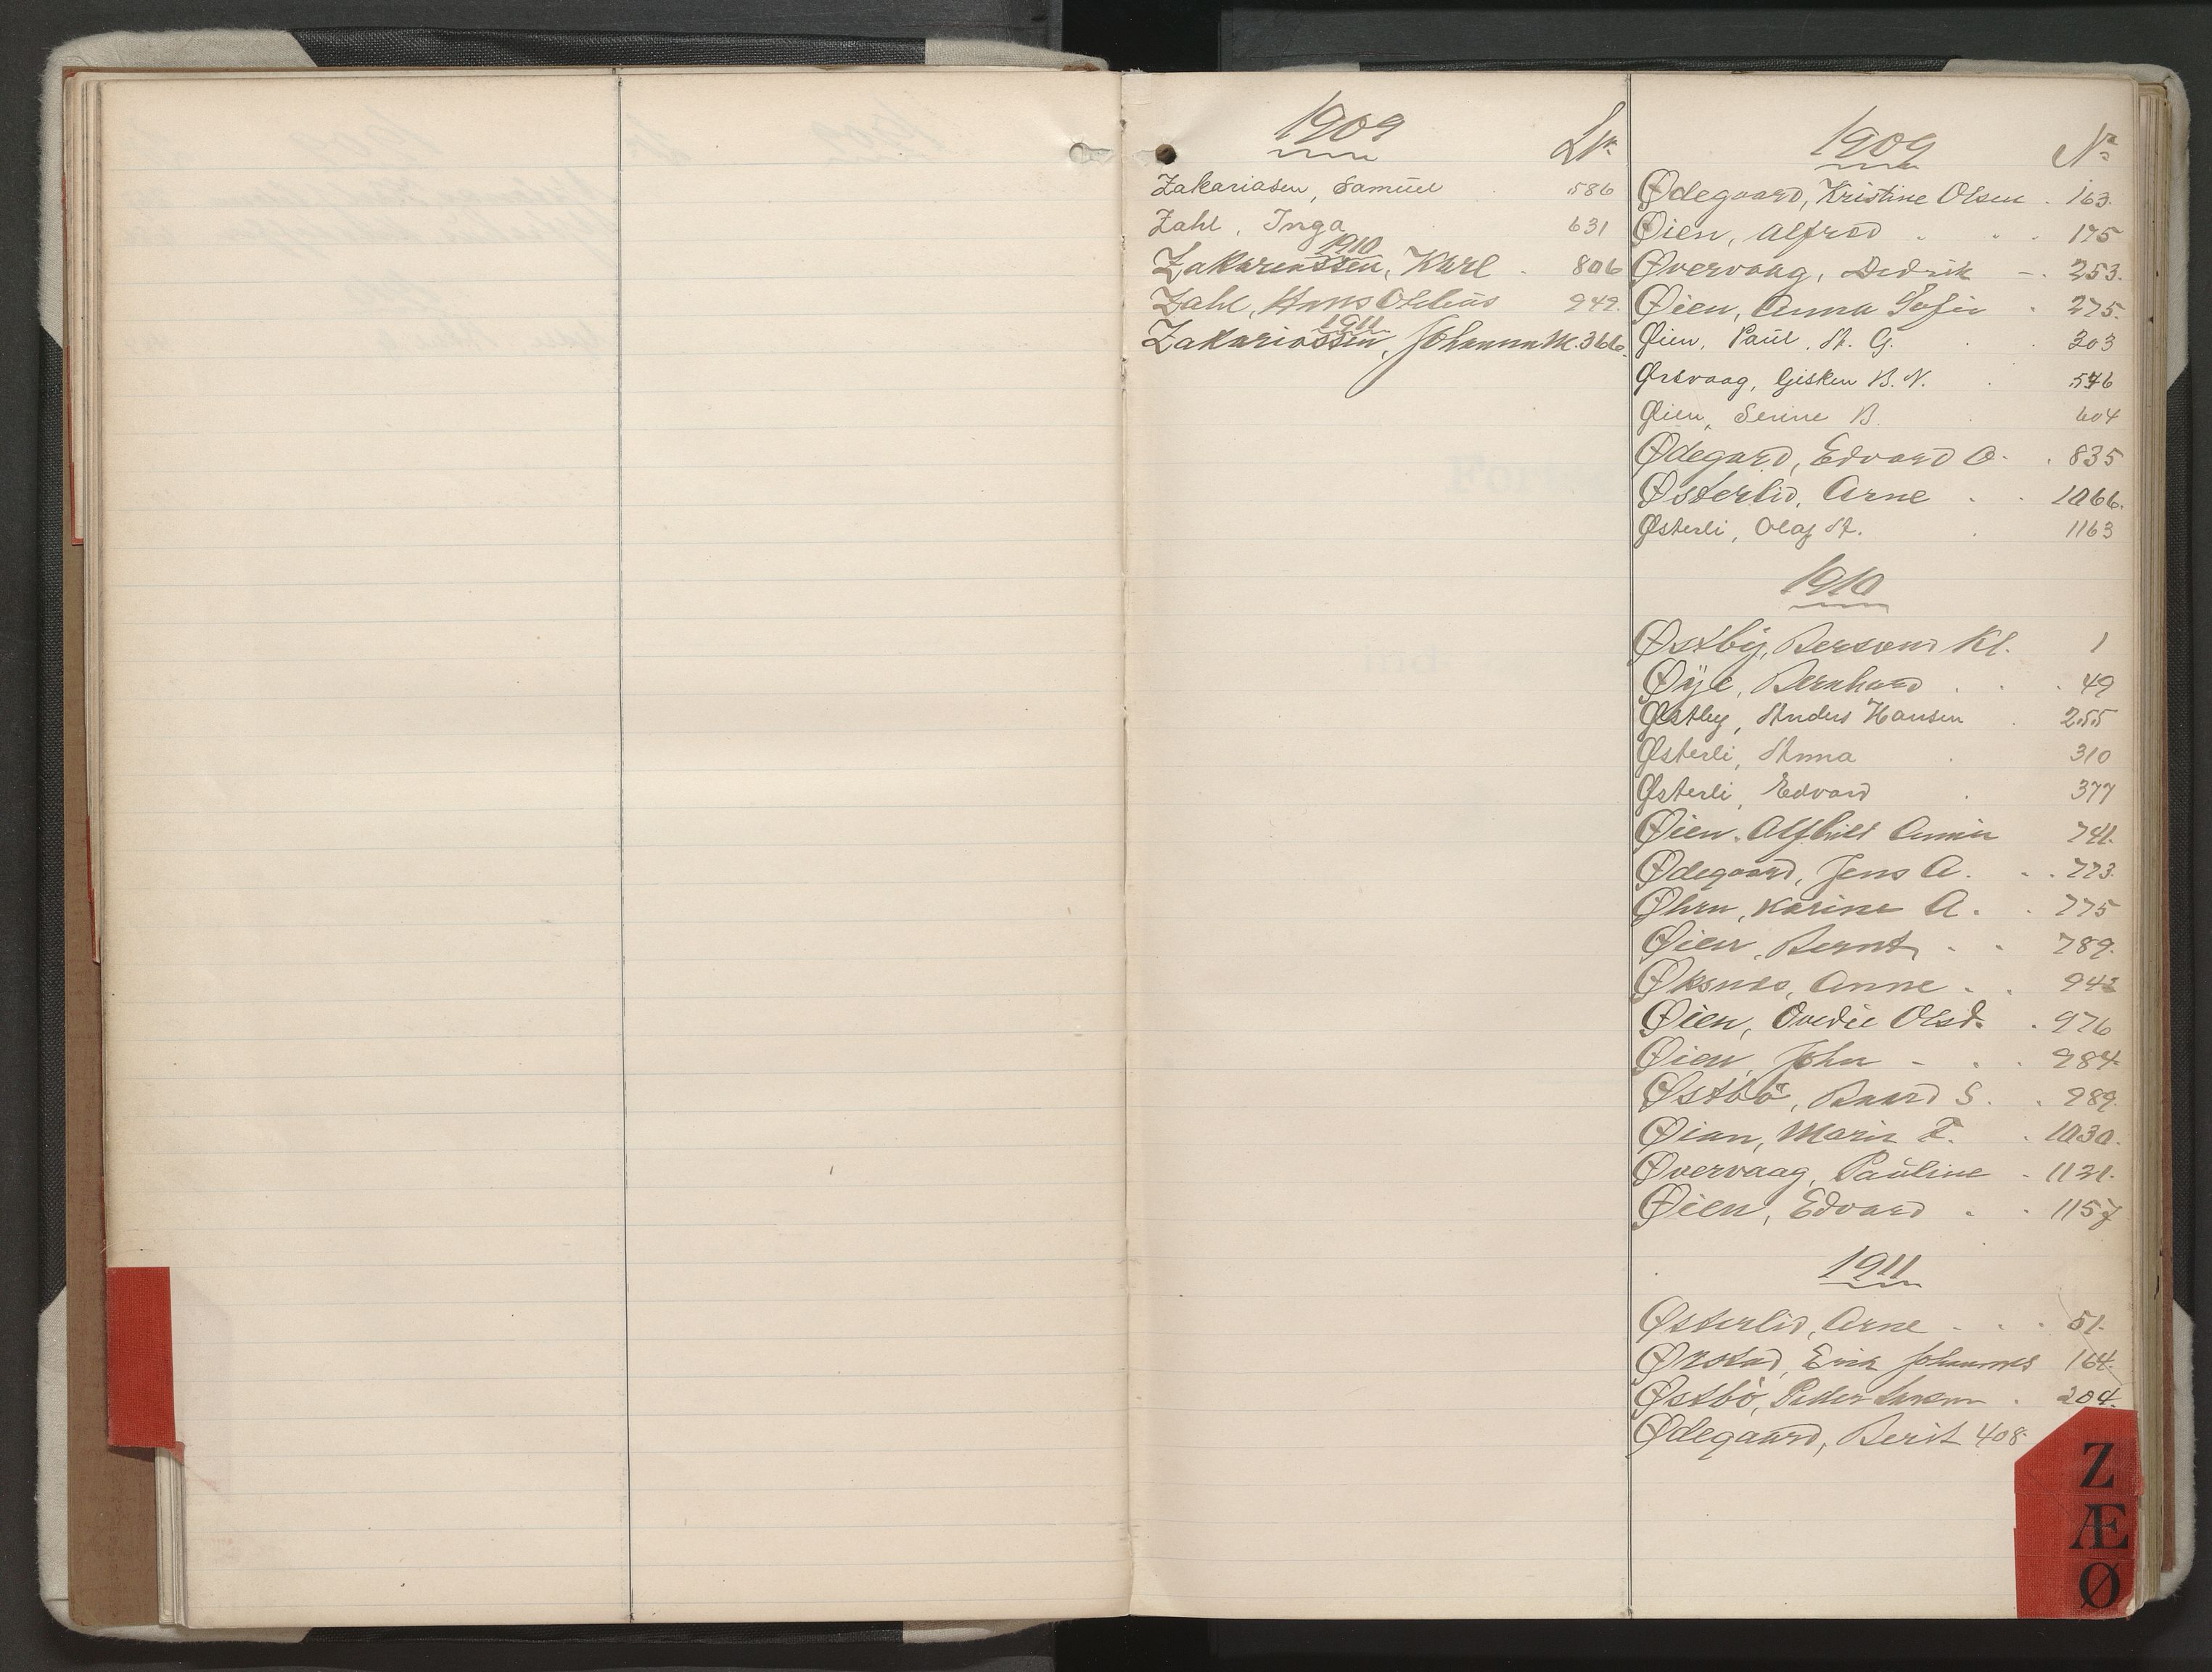 1909 Nr.
Zakariasen, Samuel 586
Zahl, Inga 631
1910
Zakariassen, Karl 806
Zahl, Hans 949.
1911
Zakariassen, Johanna M. 366.
1909 Nr.
Ødegaard, Kristine Olsen 163.
Øien, Alfred 175
Øvervaag, Didrik 253.
Øien, Anna Sofie 275.
Øien, Paul A. G. 303
Ørsvaag, Gisken B. N. 546
Øien, Serine B. 604
Ødegard, Edvard O. 835
Østerlid, Arne 1066.
Østerli, Olaf A. 1163
1910
Østby, Kl. 1
Øye, Bernhard 49
Østby, Anders Hansen 255
Østerli, Anna 310
Østerli, Edvard 377
Øien, Alfhild 741.
Ødegaard, Jens A. 773.
Øhrn, Karine A. 775
Øien, Bernt 789.
Øksnes, Anne
Øien, Ovedie Olsd. 976
Øien, John 984.
Østbö, Baard S. 989.
Øian, Marie 1030.
Øvervaag, Pauline 1121.
Øien, Edvard 1157
1911
Østerlid, Arne 51.
Erik Johannes 164.
Østbö, Peder 204.
Ødegaard, Berit 408.
Z
Æ
Ø